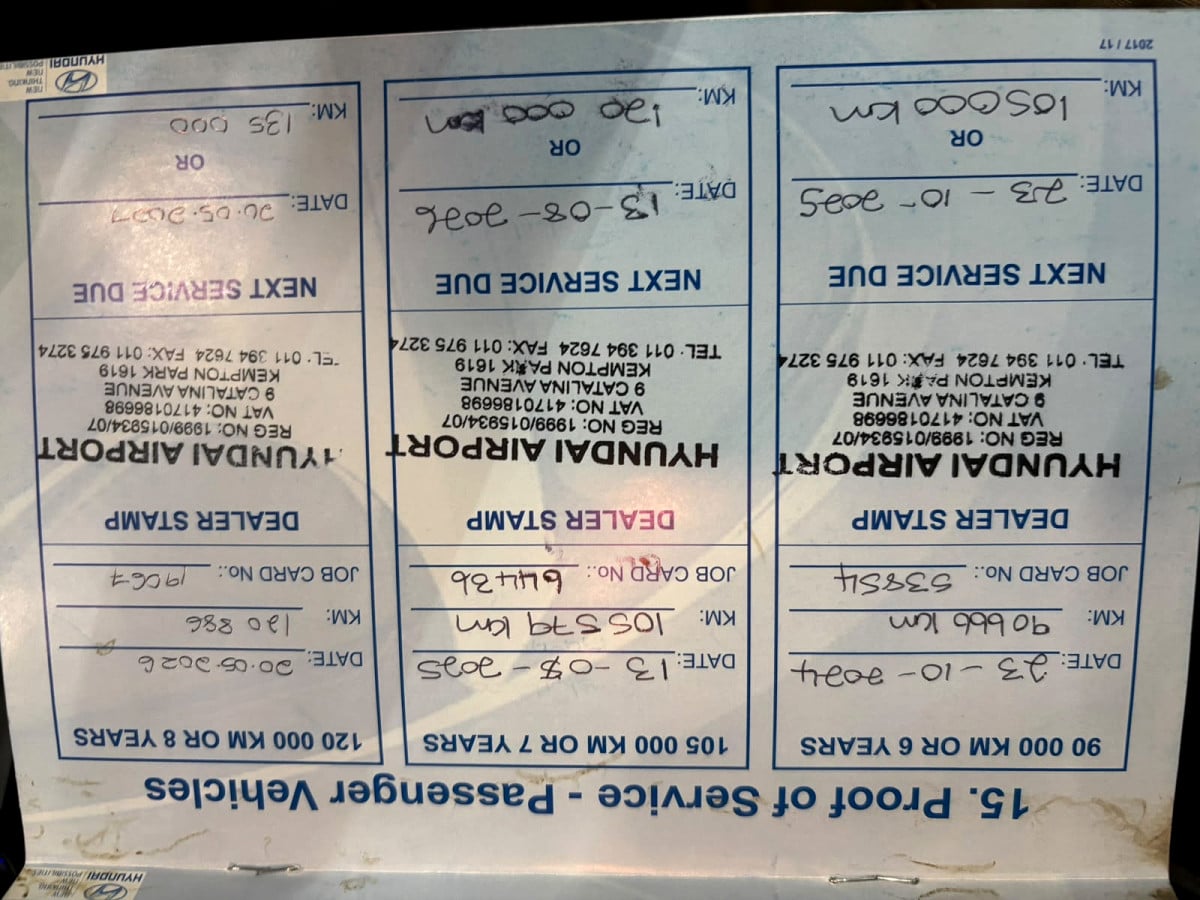 HYUNDAI
NEW THINKING.
NEW POSSIBILITIES.
15. Proof of Service - Passenger Vehicles
90 000 KM OR 6 YEARS
DATE: 23-10-2024
KM: 90666 km
JOB CARD No.: 53854
DEALER STAMP
HYUNDAI AIRPORT
REG NO: 1999/015934/07
VAT NO: 4170186698
9 CATALINA AVENUE
KEMPTON PARK 1619
TEL: 011 394 7624 FAX: 011 975 3274
NEXT SERVICE DUE
DATE: 23-10-2025
OR
KM: 105000 km
105 000 KM OR 7 YEARS
DATE: 13-08-2025
KM: 105579 km
JOB CARD No.: 64436
DEALER STAMP
HYUNDAI AIRPORT
REG NO: 1999/015934/07
VAT NO: 4170186698
9 CATALINA AVENUE
KEMPTON PARK 1619
TEL: 011 394 7624 FAX: 011 975 3274
NEXT SERVICE DUE
DATE: 13-08-2026
OR
KM: 120 000 km
120 000 KM OR 8 YEARS
DATE: 20.05.2026
KM: 120 886
JOB CARD No.: 19067
DEALER STAMP
HYUNDAI AIRPORT
REG NO: 1999/015934/07
VAT NO: 4170186698
9 CATALINA AVENUE
KEMPTON PARK 1619
TEL: 011 394 7624 FAX: 011 975 3274
NEXT SERVICE DUE
DATE: 20.05.2027
OR
KM: 135 000
2017 / 17
HYUNDAI
NEW THINKING.
NEW POSSIBILITIES.